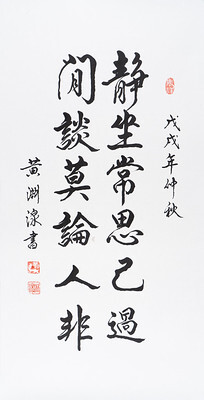 戊戌年仲秋
静坐常思己過
閒談莫論人非
黄淵湶書